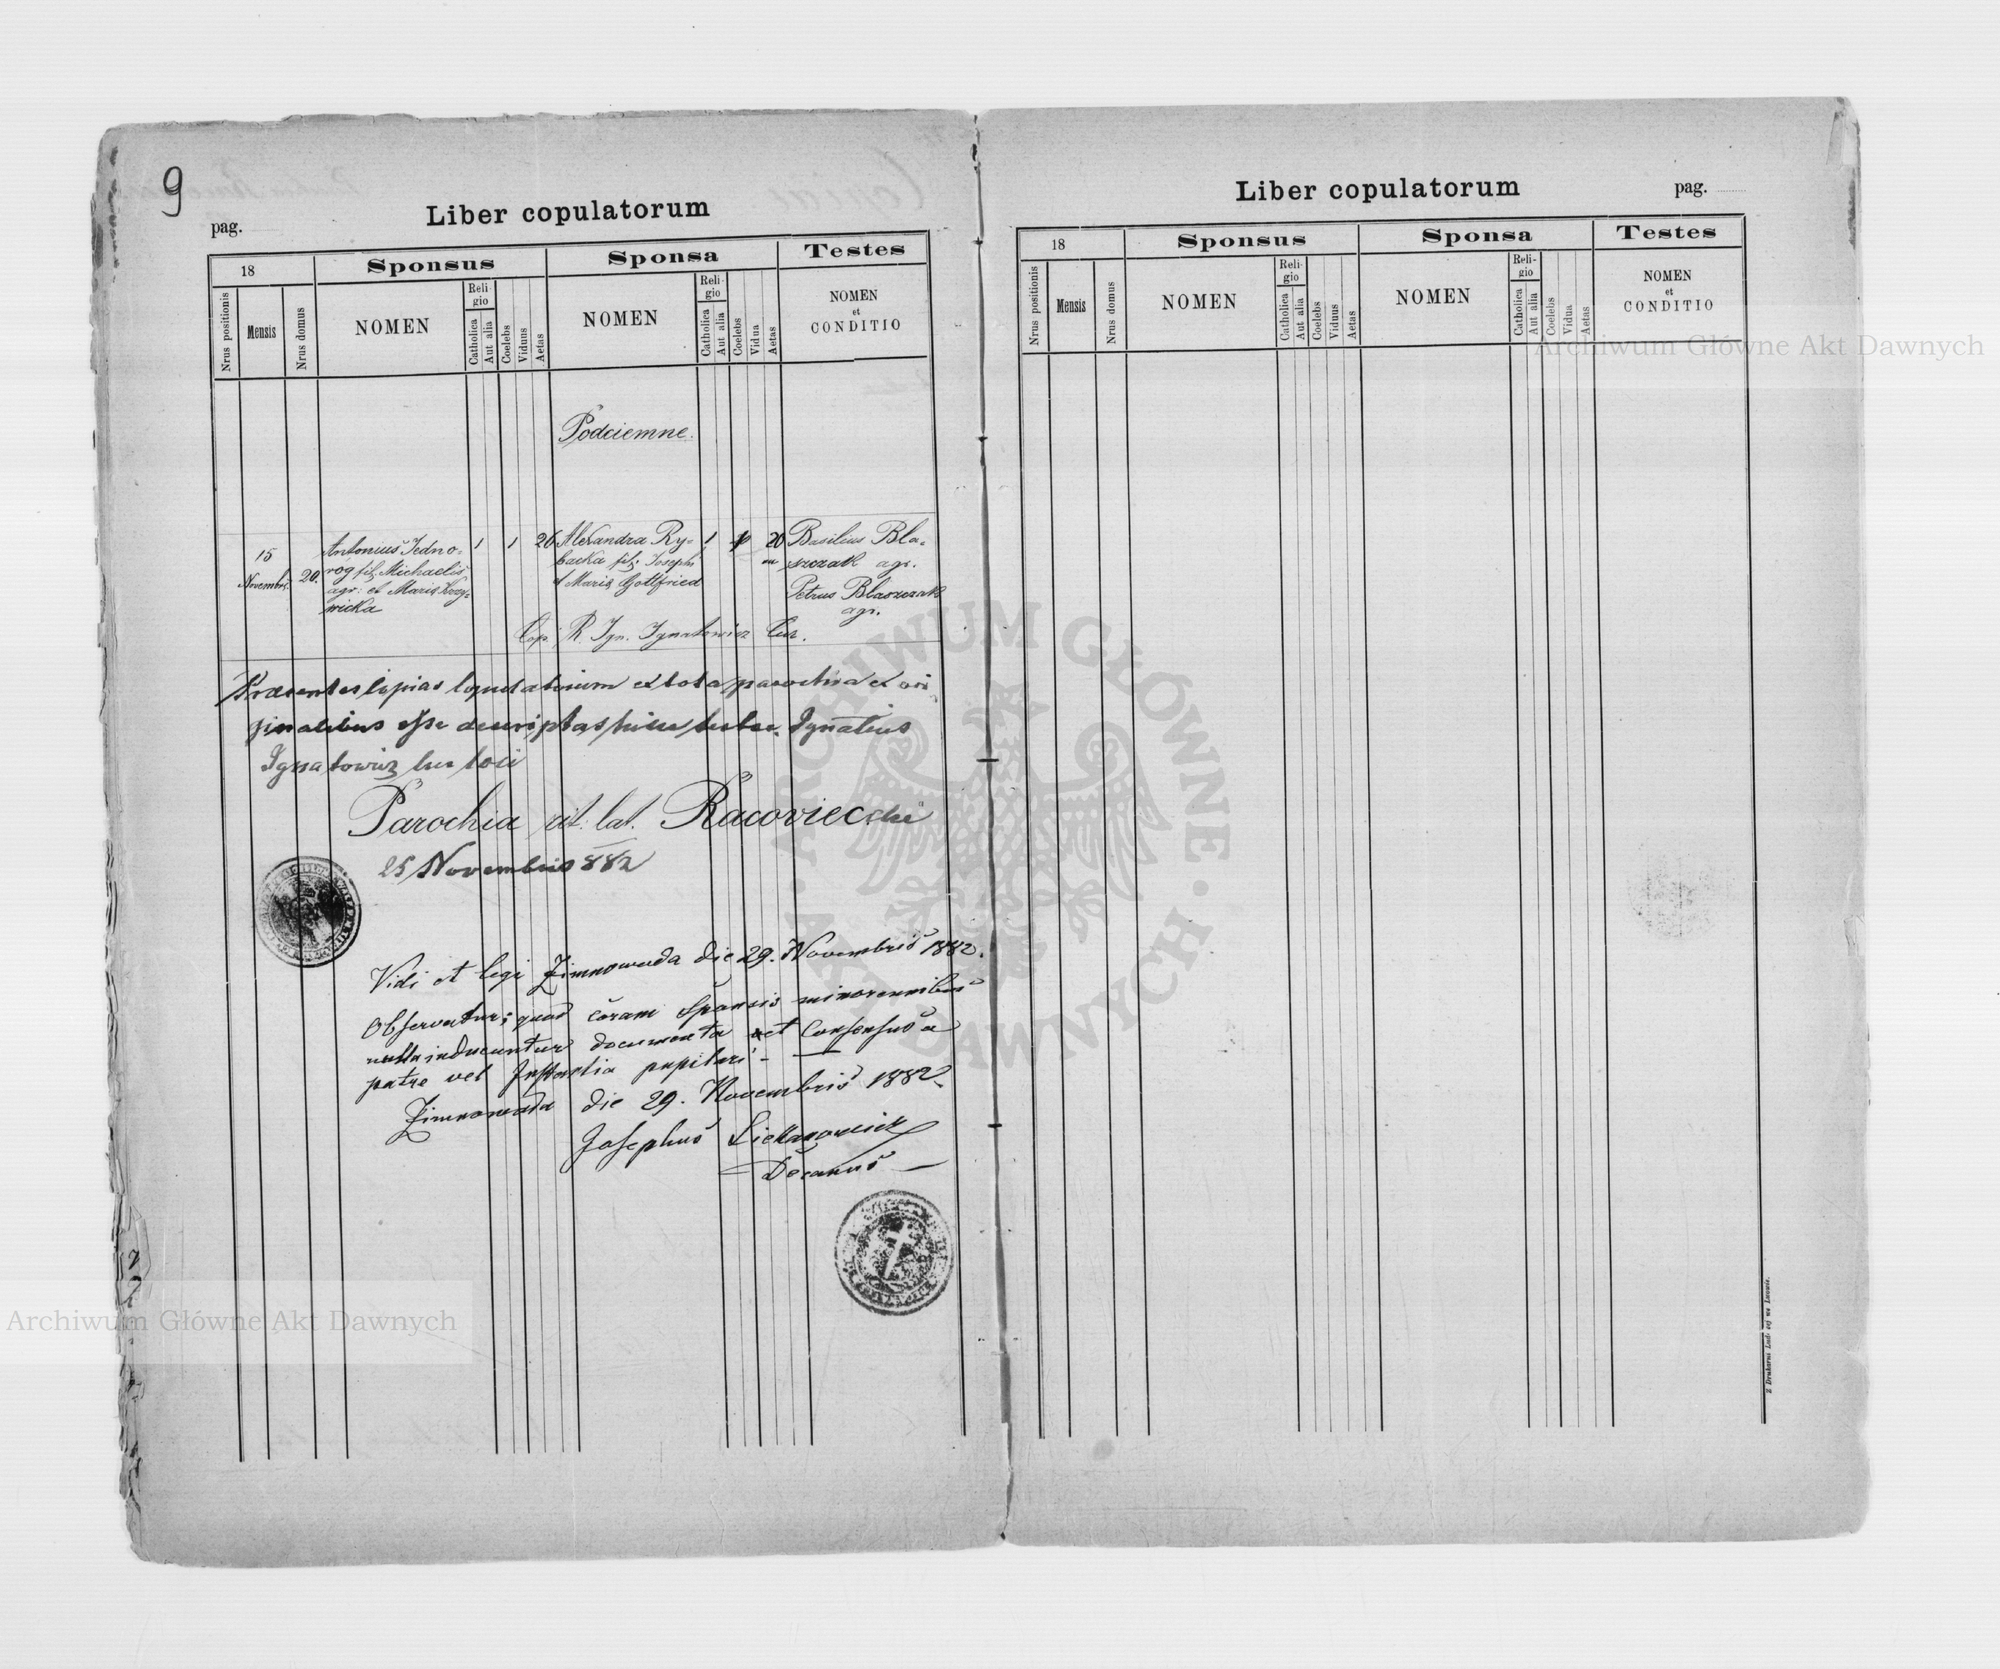 9
pag.
Liber copulatorum
18
Sponsus
Sponsa
Testes
Nrus positionis
Mensis
Nrus domus
NOMEN
Religio
Catholica
Aut alia
Coelebs
Viduus
Aetas
NOMEN
Religio
Catholica
Aut alia
Coelebs
Vidua
Aetas
NOMEN
et
CONDITIO
Podciemne.
15
Novembris
20.
Antonius Jedno-
rog fil. Michaelis
agr: et Maria Krzy-
wicka
1
1
26
Alexandra Ry-
backa fil. Josephi
et Maria Gottfried
1
1
20
Basilius Bla-
szczak agr.
Petrus Blaszczak
agr.
Cop. R. Ign. Ignatowicz Cur.
Praesentes copias copulatorum ex tota parochia ex ori
ginalibus esse descriptas hisce testor. Ignatius
Ignatowicz loci
Parochia rit. lat. Racoviec
25 Novembris 882
Vidi et legi Zimnowoda die 29. Novembris 1882.
Observatur; quod coram Sponsis minorennibus
nulla inducuntur documenta et Consensus a
patre vel Instantia pupilari -
Zimnowoda die 29. Novembris 1882
Josephus
Decanus
Liber copulatorum
pag.
18
Sponsus
Sponsa
Testes
Nrus positionis
Mensis
Nrus domus
NOMEN
Religio
Catholica
Aut alia
Coelebs
Viduus
Aetas
NOMEN
Religio
Catholica
Aut alia
Coelebs
Vidua
Aetas
NOMEN
et
CONDITIO
Archiwum Główne Akt Dawnych
ARCHIWUM GŁÓWNE · AKT DAWNYCH ·
Archiwum Główne Akt Dawnych